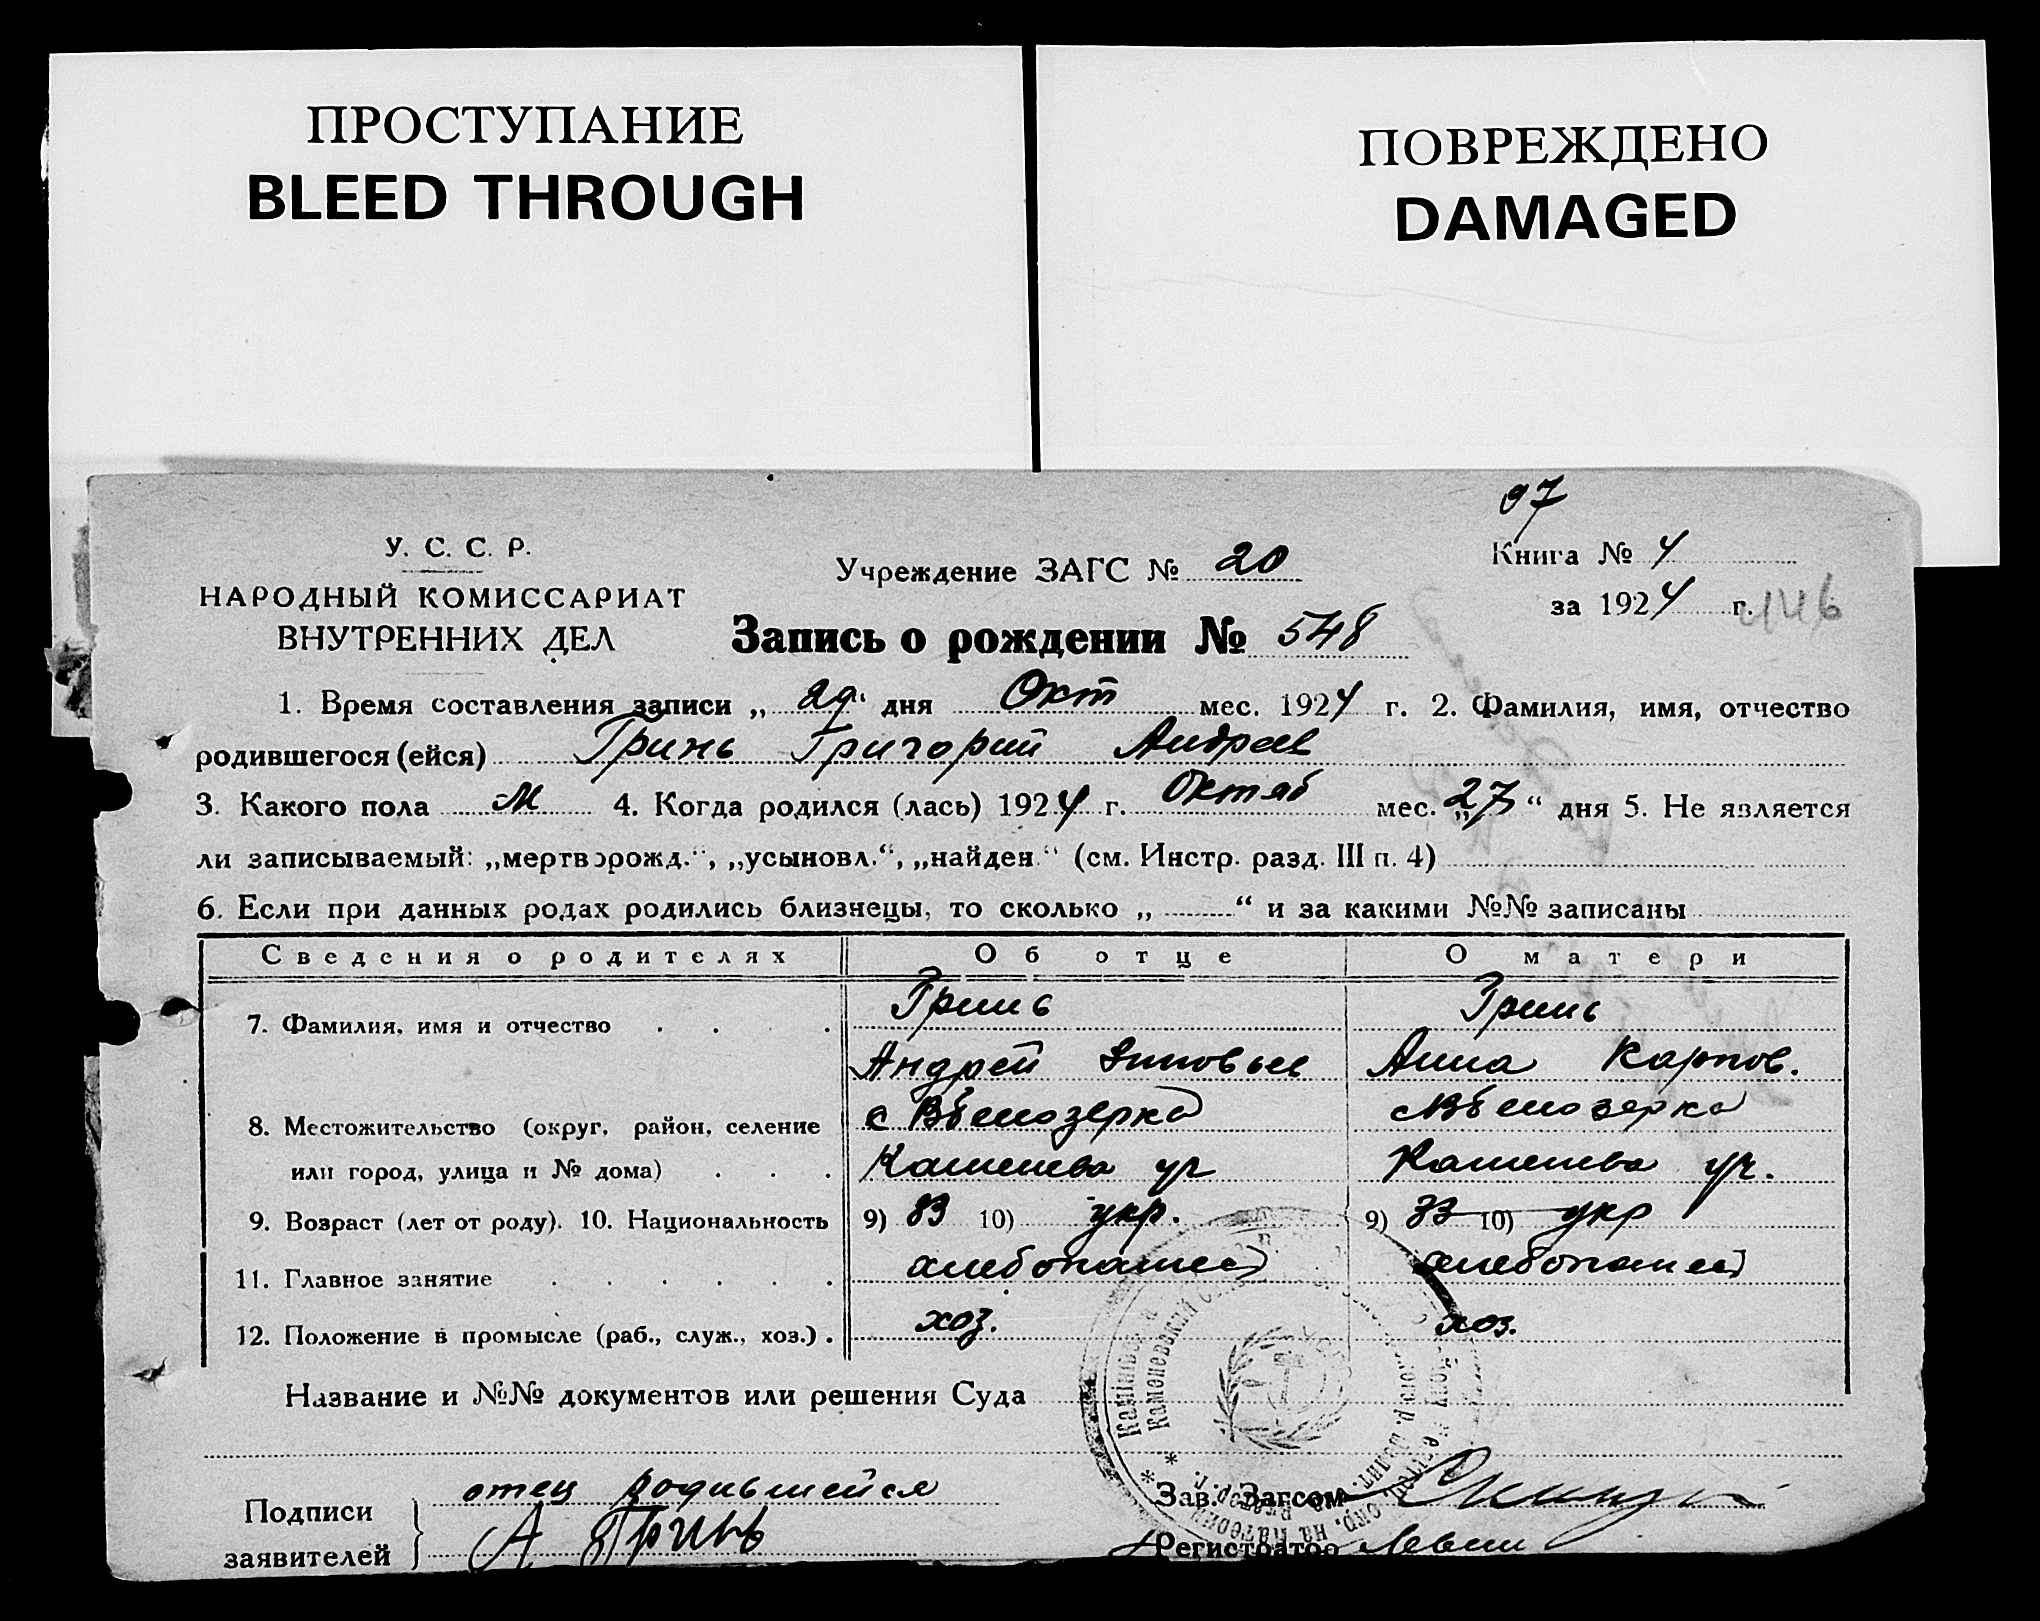 ПРОСТУПАНИЕ
BLEED THROUGH
ПОВРЕЖДЕНО
DAMAGED
97
У. С. С. Р.
НАРОДНЫЙ КОМИССАРИАТ
ВНУТРЕННИХ ДЕЛ
Учреждение ЗАГС № 20
Книга № 4
за 1924 г. 146
Запись о рождении № 548
1. Время составления записи „ 29 “ дня Окт мес. 1924 г. 2. Фамилия, имя, отчество
родившегося (ейся) Гринь Григорий Андреев
3. Какого пола М 4. Когда родился (лась) 1924 г. Октяб мес. „27“ дня 5. Не является
ли записываемый: „мертворожд.“, „усыновл.“, „найден“ (см. Инстр. разд. III п. 4)
6. Если при данных родах родились близнецы, то сколько „ “ и за какими №№ записаны
Сведения о родителях Об отце О матери
7. Фамилия, имя и отчество Гринь Гринь
Андрей Зиновьев Анна Карпов.
8. Местожительство (округ, район, селение с Вбелозерка с Вбелозерка
или город, улица и № дома) Каменева ул Каменева ул.
9. Возраст (лет от роду). 10. Национальность 9) 33 10) укр. 9) 33 10) укр
11. Главное занятие хлебопашец хлебопашец
12. Положение в промысле (раб., служ., хоз.) . хоз. хоз.
Название и №№ документов или решения Суда
Каменевский
Подписи заявителей
отец родившейся
А Гринь
Зав. Загсом
Регистратор